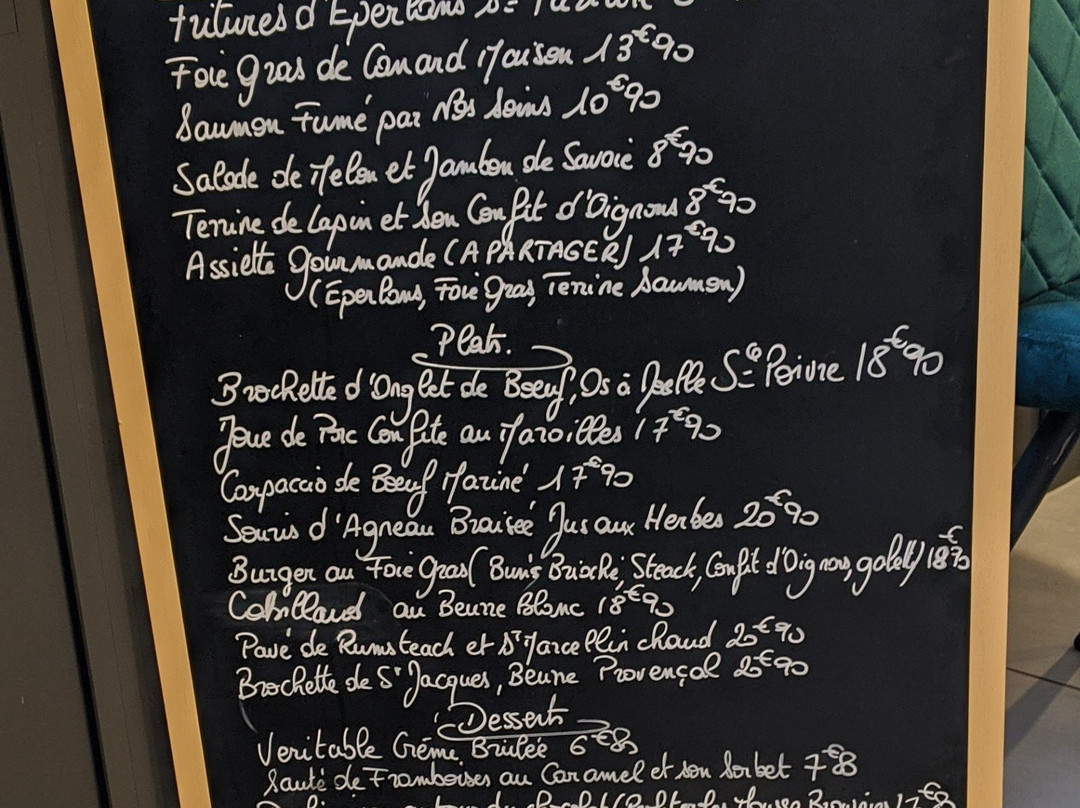 Fritures d'Eperlans
Foie Gras de Canard Maison 13€90
Saumon Fumé par Nos Soins 10€90
Salade de Melon et Jambon de Savoie 8€90
Terrine de Lapin et Son Confit d'Oignons 8€90
Assiette Gourmande (A PARTAGER) 17€90
(Eperlans, Foie Gras, Terrine Saumon)
Plats.
Brochette d'Onglet de Boeuf, Os à Moelle Sce Poivre 18€90
Joue de Porc Confite au Maroilles 17€90
Carpaccio de Boeuf Mariné 17€90
Souris d'Agneau Braisée Jus aux Herbes 20€90
Burger au Foie Gras (Bun's Brioché, Steack, Confit d'Oignons, galett) 18€
Cabillaud au Beurre Blanc 18€90
Pavé de Rumsteack et St Marcellin chaud 20€90
Brochette de St Jacques, Beurre Provençal 20€90
Desserts
Veritable Crème Brulée 6€
Sauté de Framboises au Caramel et son Sorbet 7€